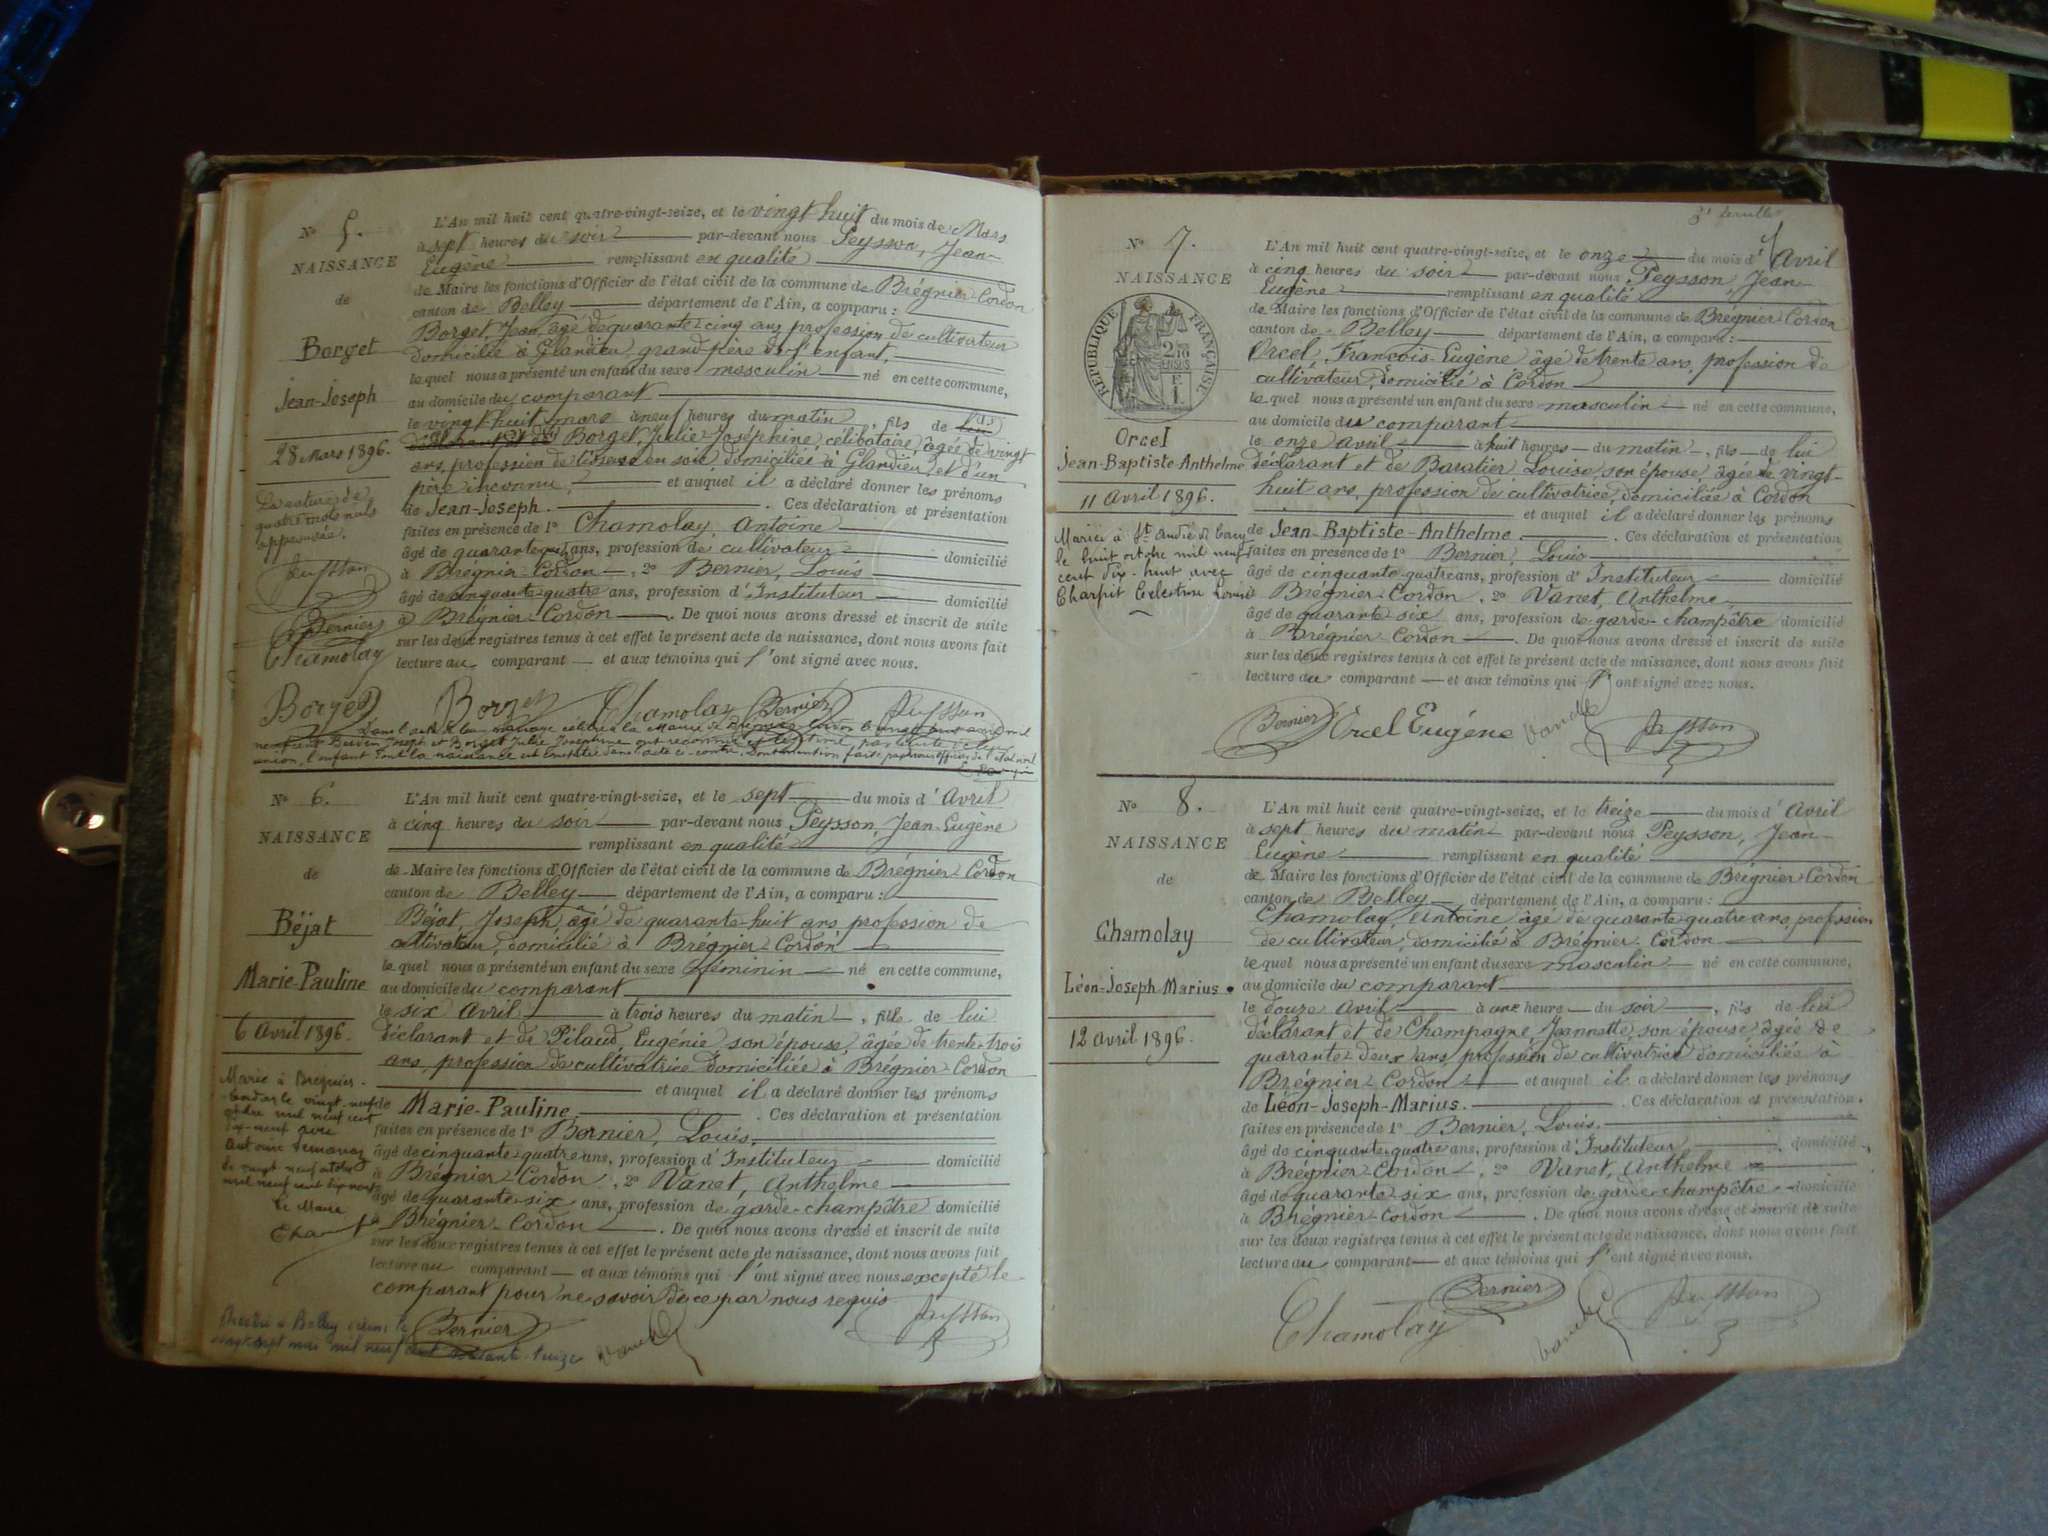 Nº 5.
NAISSANCE
de
Borget
Jean-Joseph
28 Mars 1896.
La rature de
quatre mots nuls
approuvée.
Peysson
Bernier
Chamolay
L'An mil huit cent quatre-vingt-seize, et le vingt huit du mois de Mars
à sept heures du soir par-devant nous Peysson, Jean-
Eugène remplissant en qualité
de Maire les fonctions d'Officier de l'état civil de la commune de Brégnier-Cordon
canton de Belley département de l'Ain, a comparu :
Borget, Jean, âgé de quarante-cinq ans, profession de cultivateur
domicilié à Glandieu, grand-père de l'enfant,
le quel nous a présenté un enfant du sexe masculin né en cette commune,
au domicile du comparant
le vingt huit mars à neuf heures du matin, fils de
Borget, Julie-Joséphine, célibataire, âgée de vingt
ans, profession de tisseuse en soie, domiciliée à Glandieu et d'un
père inconnu, et auquel il a déclaré donner les prénoms
de Jean-Joseph. Ces déclaration et présentation
faites en présence de 1º Chamolay, Antoine
âgé de quarante ans, profession de cultivateur domicilié
à Brégnier-Cordon, 2º Bernier, Louis
âgé de cinquante-quatre ans, profession d'Instituteur domicilié
à Brégnier-Cordon. De quoi nous avons dressé et inscrit de suite
sur les deux registres tenus à cet effet le présent acte de naissance, dont nous avons fait
lecture au comparant et aux témoins qui l'ont signé avec nous.
Borget Borget Chamolay Bernier Peysson
Dans l'acte de leur mariage célébré à la Mairie de Brégnier-Cordon le
neuf cent Joseph et Borget Julie Joséphine ont reconnu
union, l'enfant dont la naissance est constatée dans l'acte ci-contre
Nº 6.
NAISSANCE
de
Béjat
Marie-Pauline
6 Avril 1896.
Mariée à Brégnier-
Cordon le vingt-neuf
octobre mil neuf cent
dix-neuf avec
Antoine
Le vingt neuf octobre
mil neuf cent dix neuf
Le Maire
L'An mil huit cent quatre-vingt-seize, et le sept du mois d'Avril
à cinq heures du soir par-devant nous Peysson, Jean-Eugène
remplissant en qualité
de Maire les fonctions d'Officier de l'état civil de la commune de Brégnier-Cordon
canton de Belley département de l'Ain, a comparu :
Béjat, Joseph, âgé de quarante-huit ans, profession de
cultivateur, domicilié à Brégnier-Cordon
le quel nous a présenté un enfant du sexe féminin né en cette commune,
au domicile du comparant
le six Avril à trois heures du matin, fille de lui
déclarant et de Pilaud, Eugénie son épouse, âgée de trente-trois
ans, profession de cultivatrice domiciliée à Brégnier-Cordon
et auquel il a déclaré donner les prénoms
de Marie-Pauline. Ces déclaration et présentation
faites en présence de 1º Bernier, Louis.
âgé de cinquante-quatre ans, profession d'Instituteur domicilié
à Brégnier-Cordon, 2º Vanet, Anthelme
âgé de quarante-six ans, profession de garde-champêtre domicilié
à Brégnier-Cordon. De quoi nous avons dressé et inscrit de suite
sur les deux registres tenus à cet effet le présent acte de naissance, dont nous avons fait
lecture au comparant et aux témoins qui l'ont signé avec nous excepté le
comparant pour ne savoir de ce par nous requis
Bernier Vanet Peysson
Décédée à Belley (Ain) le
vingt sept mai mil neuf cent soixante treize
Nº 7.
NAISSANCE
RÉPUBLIQUE FRANÇAISE
Orcel
Jean-Baptiste-Anthelme
11 Avril 1896.
Marié à St André
le huit octobre mil neuf
cent dix-huit avec
Charpit Célestine Louise
L'An mil huit cent quatre-vingt-seize, et le onze du mois d'Avril
à cinq heures du soir par-devant nous Peysson, Jean-
Eugène remplissant en qualité
de Maire les fonctions d'Officier de l'état civil de la commune de Brégnier-Cordon
canton de Belley département de l'Ain, a comparu :
Orcel, François-Eugène âgé de trente ans, profession de
cultivateur, domicilié à Cordon
le quel nous a présenté un enfant du sexe masculin né en cette commune,
au domicile du comparant
le onze avril à huit heures du matin, fils de lui
déclarant et de Baratier Louise son épouse, âgée de vingt-
huit ans, profession de cultivatrice, domiciliée à Cordon
et auquel il a déclaré donner les prénoms
de Jean-Baptiste-Anthelme. Ces déclaration et présentation
faites en présence de 1º Bernier, Louis
âgé de cinquante-quatre ans, profession d'Instituteur domicilié
à Brégnier-Cordon, 2º Vanet, Anthelme
âgé de quarante six ans, profession de garde-champêtre domicilié
à Brégnier-Cordon. De quoi nous avons dressé et inscrit de suite
sur les deux registres tenus à cet effet le présent acte de naissance, dont nous avons fait
lecture au comparant et aux témoins qui l'ont signé avec nous.
Bernier Orcel Eugène Vanet Peysson
Nº 8.
NAISSANCE
de
Chamolay
Léon-Joseph Marius.
12 Avril 1896.
L'An mil huit cent quatre-vingt-seize, et le treize du mois d'Avril
à sept heures du matin par-devant nous Peysson, Jean-
Eugène remplissant en qualité
de Maire les fonctions d'Officier de l'état civil de la commune de Brégnier-Cordon
canton de Belley département de l'Ain, a comparu :
Chamolay, Antoine âgé de quarante-quatre ans, profession
de cultivateur, domicilié à Brégnier-Cordon
le quel nous a présenté un enfant du sexe masculin né en cette commune,
au domicile du comparant
le douze avril à une heure du soir, fils de lui
déclarant et de Champagne, Jeannette, son épouse, âgée de
quarante-deux ans, profession de cultivatrice domiciliée à
Brégnier-Cordon et auquel il a déclaré donner les prénoms
de Léon-Joseph-Marius. Ces déclaration et présentation
faites en présence de 1º Bernier, Louis.
âgé de cinquante-quatre ans, profession d'Instituteur domicilié
à Brégnier-Cordon, 2º Vanet, Anthelme
âgé de quarante-six ans, profession de garde-champêtre domicilié
à Brégnier-Cordon. De quoi nous avons dressé et inscrit de suite
sur les deux registres tenus à cet effet le présent acte de naissance, dont nous avons fait
lecture au comparant et aux témoins qui l'ont signé avec nous.
Chamolay Bernier Vanet Peysson